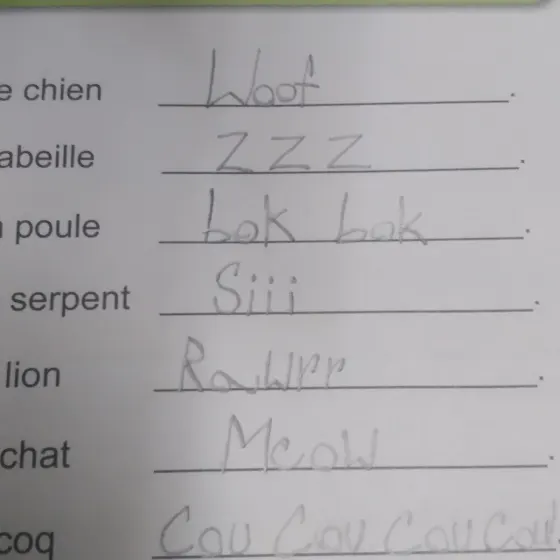 e chien Woof.
abeille ZZZ.
poule bok bok.
serpent Siii.
lion Rawrr.
chat Meow.
coq Cou Cou Cou Cou!